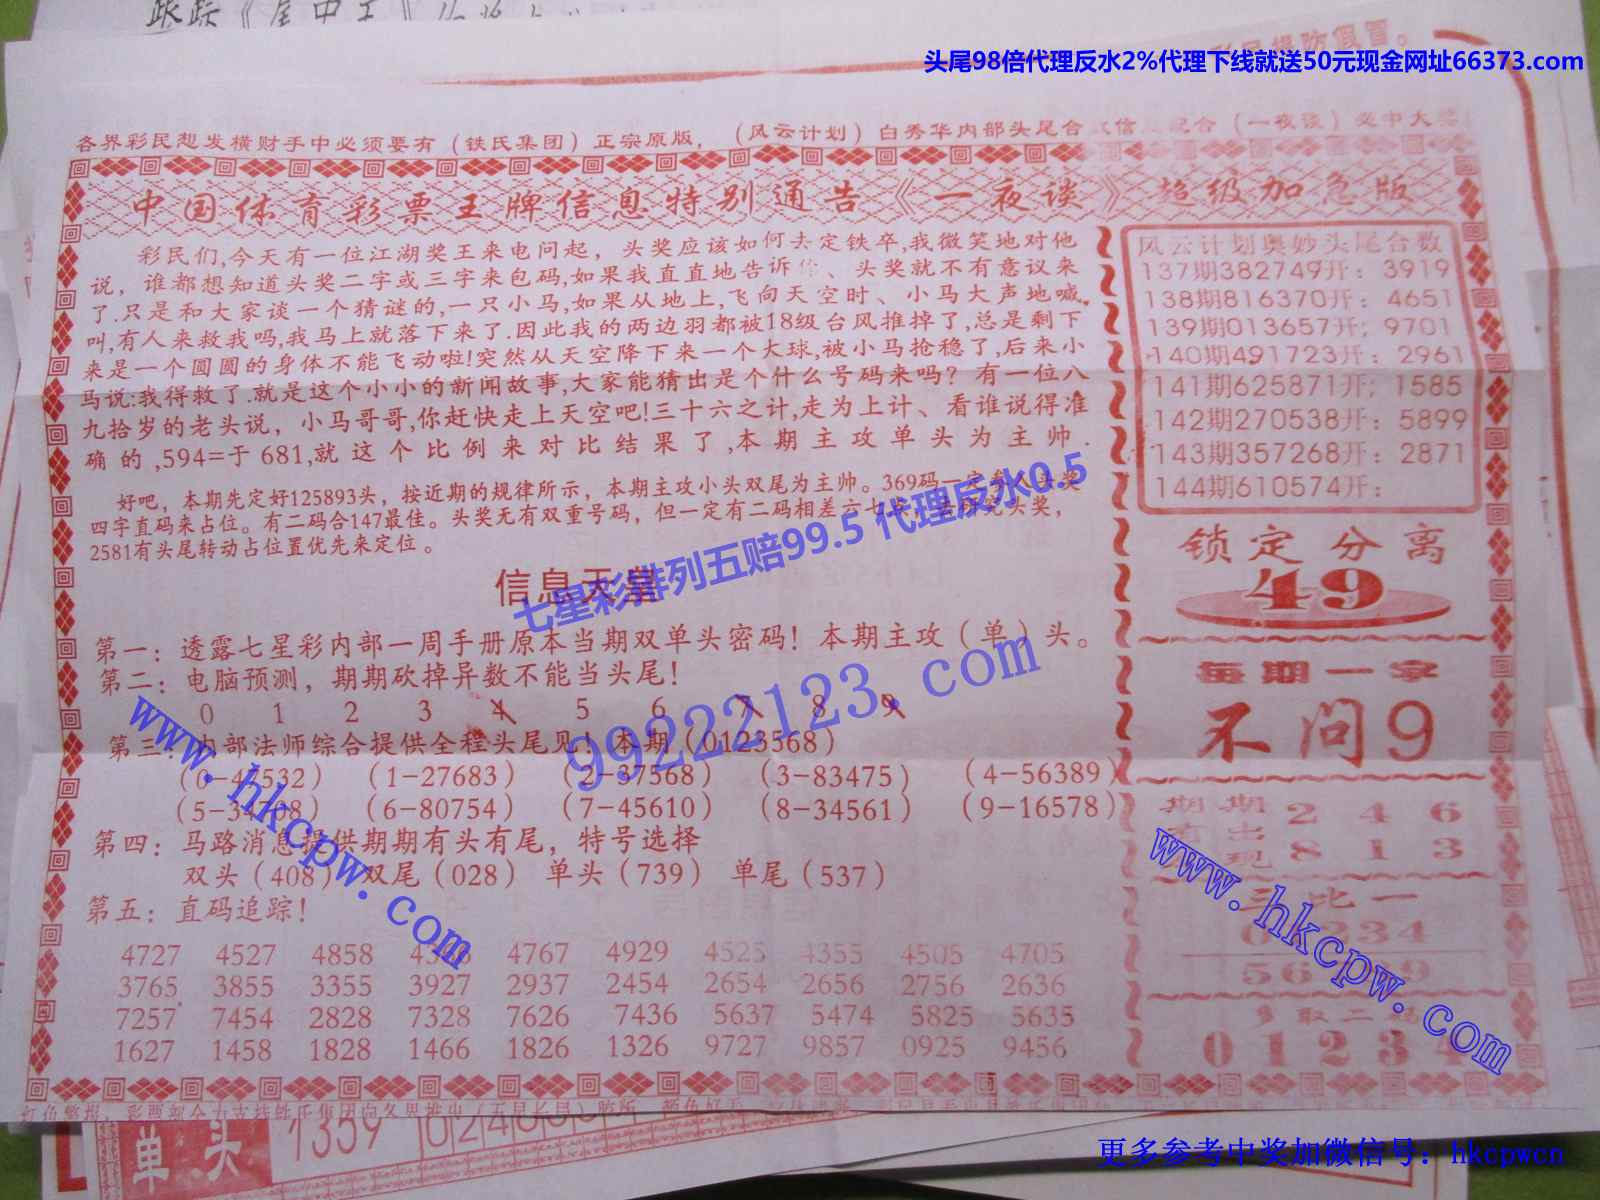 跟踪《
防假冒。
头尾98倍代理反水2%代理下线就送50元现金网址66373.com
各界彩民想发横财手中必须要有（铁氏集团）正宗原版，（风云计划）白秀华内部头尾合 信 配合（一夜谈）必中大奖
中国体育彩票王牌信息特别通告《一夜谈》超级加急版
彩民们,今天有一位江湖奖王来电问起，头奖应该如何去定铁卒,我微笑地对他
说，谁都想知道头奖二字或三字来包码,如果我直直地告诉 、头奖就不有意议来
了.只是和大家谈一个猜谜的,一只小马,如果从地上,飞向天空时、小马大声地喊
叫,有人来救我吗,我马上就落下来了.因此我的两边羽都被18级台风推掉了,总是剩下
来是一个圆圆的身体不能飞动啦!突然从天空降下来一个大球,被小马抢稳了,后来小
马说:我得救了.就是这个小小的新闻故事,大家能猜出是个什么号码来吗？有一位八
九拾岁的老头说，小马哥哥,你赶快走上天空吧!三十六之计,走为上计、看谁说得准
确的,594=于681,就这个比例来对比结果了,本期主攻单头为主帅.
好吧，本期先定好125893头，按近期的规律所示，本期主攻小头双尾为主帅。369码一定参入头奖
四字直码来占位。有二码合147最佳。头奖无有双重号码，但一定有二码相差六七 研究头奖，
2581有头尾转动占位置优先来定位。
七星彩排列五赔99.5 代理反水0.5
信息天皇
第一：透露七星彩内部一周手册原本当期双单头密码！本期主攻（单）头。
第二：电脑预测，期期砍掉异数不能当头尾！
0 1 2 3 4 5 6 7 8 9
第三：内部法师综合提供全程头尾见！本期（0123568）
（0-47532）（1-27683）（2-37568）（3-83475）（4-56389）
（5-34708）（6-80754）（7-45610）（8-34561）（9-16578）
第四：马路消息提供期期有头有尾，特号选择
双头（408） 双尾（028） 单头（739） 单尾（537）
第五：直码追踪！
4727 4527 4858 4767 4929 4525 4355 4505 4705
3765 3855 3355 3927 2937 2454 2654 2656 2756 2636
7257 7454 2828 7328 7626 7436 5637 5474 5825 5635
1627 1458 1828 1466 1826 1326 9727 9857 0925 9456
风云计划奥妙头尾合数
137期382749开：3919
138期816370开：4651
139期013657开；9701
140期491723开：2961
141期625871开；1585
142期270538开：5899
143期357268开：2871
144期610574开：
锁定分离
49
每期一字
不问9
期期 2 4 6
出
现 8 1 3
三比一
取二码
0 1 2 3 4
99222123.com
www.hkcpw.com
www.hkcpw.com
单头
1359
更多参考中奖加微信号：hkcpwcn